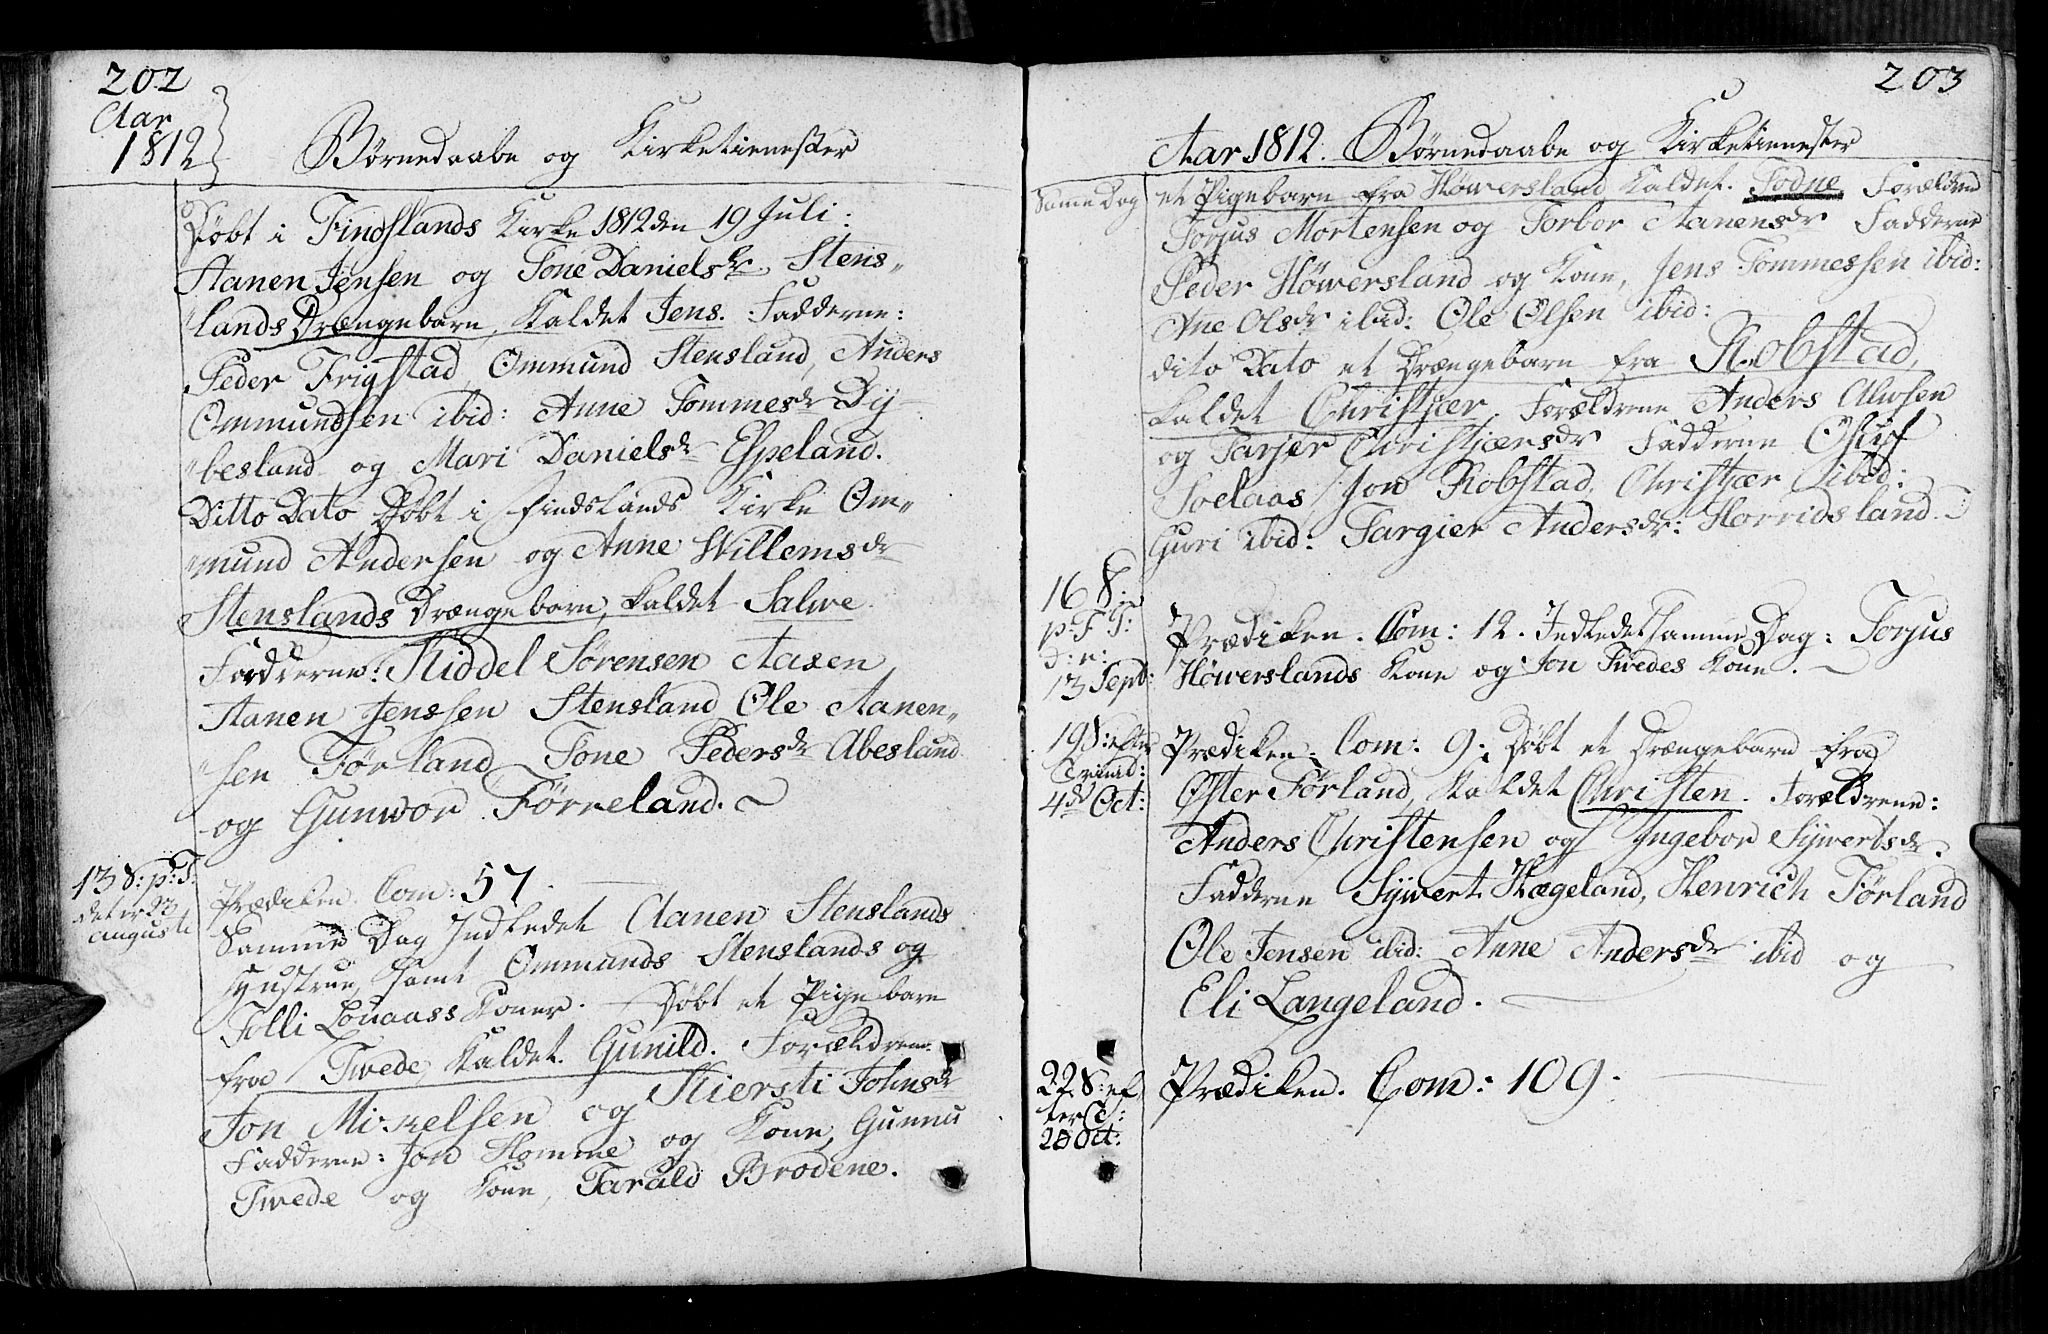 202
Aar
1812
Børnedaabe og Kirketienester
Døbt i Findslands Kirke 1812 den 19 Juli:
Aanen Jensen og Tone Danielsdr Stens„
„lands Drængebarn, kaldet Jens. Fadderne:
Peder Frigstad, Ommund Stensland, Anders
Ommundsen ibid: Anne Tommesdr Dy
„besland og Mari Danielsdr Espeland.
Ditto Dato Døbt i Findslands Kirke Om„
„mund Andersen og Anne Willemsdr
Stenslands Drængebarn, kaldet Salwe.
Fadderne: Kiddel Sørensen Aasen
Aanen Jenssen Stensland Ole Aanen„
„sen Førland Tone Pedersdr Abesland
og Gunwor Førreland.
13 S: p: T:
det er d 23
augusti
Prædiken. Com: 57.
Samme Dag Indledet Aanen Stenslands
Hustrue, samt Ommunds Stenslands og
Tolli Louaass Koner. Døbt et Pigebarn
fra Twede, kaldet Gunild. Forældrene
Jon Mikelsen og Kiersti Johnsdr
Fadderne: Jon Homme og Kone, Gunnu
Twede og Kone, Tarald Brodene.
203
Aar 1812. Børnedaabe og Kirketienester
Same Dag
et Pigebarn fra Høwersland kaldet. Todne Forældrene
Torjus Mortensen og Torbor Aanensdr Fadderne
Peder Høwersland og Kone, Jens Tommessen ibid:
Ane Olsdr ibid: Ole Olsen ibid:
dito Dato et Drængebarn fra Robstad,
kaldet Christjær. Forældrene Anders Alwsen
og Tarjer Christjærsdr Fadderne
Soelaas, Jon Robstad, Christjær ibid:
Guri ibid: Targier Andersdr: Horridsland.
16 S:
p: F T:
d: n:
13 Sept:
Prædiken. Com: 12. Indledet samme Dag: Torjus
Høwerslands Kone og Jon Twedes Kone.
19 S: efter
Trinid:
4de Oct:
Prædiken. Com: 9. Døbt et Drængebarn fra
Øster Førland, kaldet Christen. Forældrene:
Anders Christensen og Ingebor Sywertsdr.
Fadderne Sywert Hægeland, Henrich Førland
Ole Jensen ibid: Anne Andersdr ibid og
Eli Langeland.
22 S: ef
ter T:
Oct:
Prædiken. Com: 109.